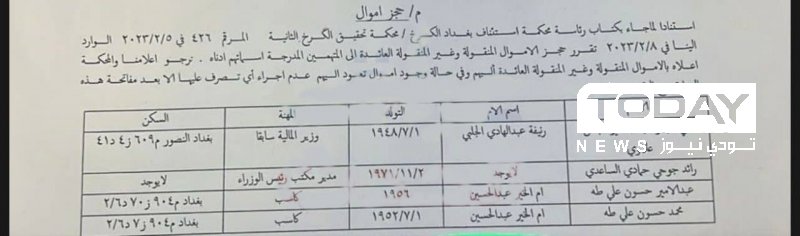 م/ حجز اموال
استنادا لماجاء بكتاب رئاسة محكمة استئناف بغداد الكرخ / محكمة تحقيق الكرخ الثانية المرقم ٤٢٦ في ٢٠٢٣/٢/٥ الوارد
الينا في ٢٠٢٣/٢/٨ تقرر حجز الاموال المنقولة وغير المنقولة العائدة الى المتهمين المدرجة اسمائهم ادناه . نرجو اعلامنا والمحكمة
اعلاه بالاموال المنقولة وغير المنقولة العائدة اليهم وفي حالة وجود اموال تعود اليهم عدم اجراء أي تصرف عليها الا بعد مفاتحة هذه
اسم الام التولد المهنة السكن
رئيفة عبدالهادي الجلبي ١٩٤٨/٧/١ وزير المالية سابقا بغداد النصور م٦٠٩ ز٤ د٤١
علاوي
رائد جوحي حمادي الساعدي لايوجد ١٩٧١/١١/٢ مدير مكتب رئيس الوزراء لايوجد
عبدالامير حسون علي طه ام الخير عبدالحسين ١٩٥٦ كاسب بغداد م٩٠٤ ز٧٠ د٢/٦
محمد حسون علي طه ام الخير عبدالحسين ١٩٥٢/٧/١ كاسب بغداد م٩٠٤ ز٧ د٢/٦
TODAY
NEWS تودي نيوز